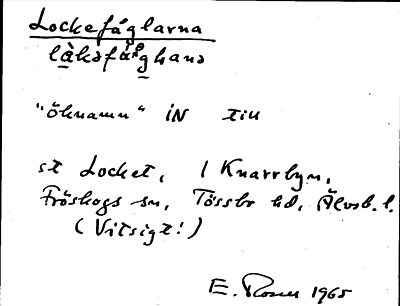 Lockefåglarna
làkəfå͛ghanə
"öknamn" iN till
st Locket, i Knarrbyn,
Fröskogs sn, Tössbo hd, Älvsb. l.
(Vitsigt!)
E. Rosen 1965